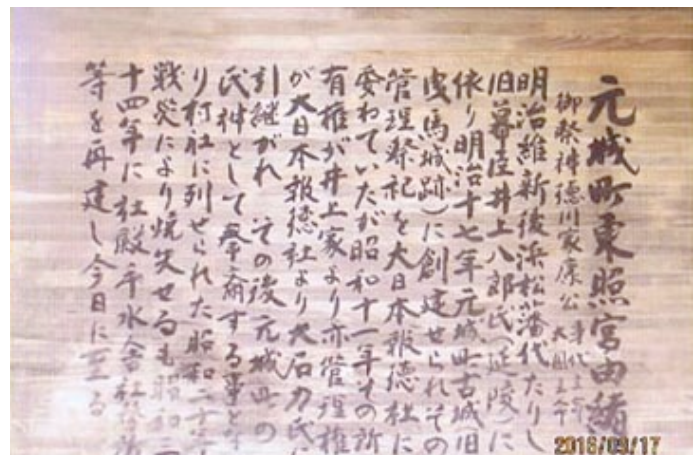 元城町東照宮由緒
御祭神徳川家康公 事代主命 大国主命
明治維新後浜松藩代たりし
旧幕臣井上八郎氏(延陵)に
依り明治十七年元城町古城(旧
曳馬城跡)に創建せられその
管理祭祀を大日本報徳社に
委ねていたが昭和十一年その所
有権が井上家より亦管理権
が大日本報徳社より大石力氏に
引継がれ その後元城町の
氏神として奉斎する事とな
り村社に列せられた昭和二十年
戦災により焼失せるも昭和三
十四年に社殿手水舎社務所
等を再建し今日に至る
2016/09/17